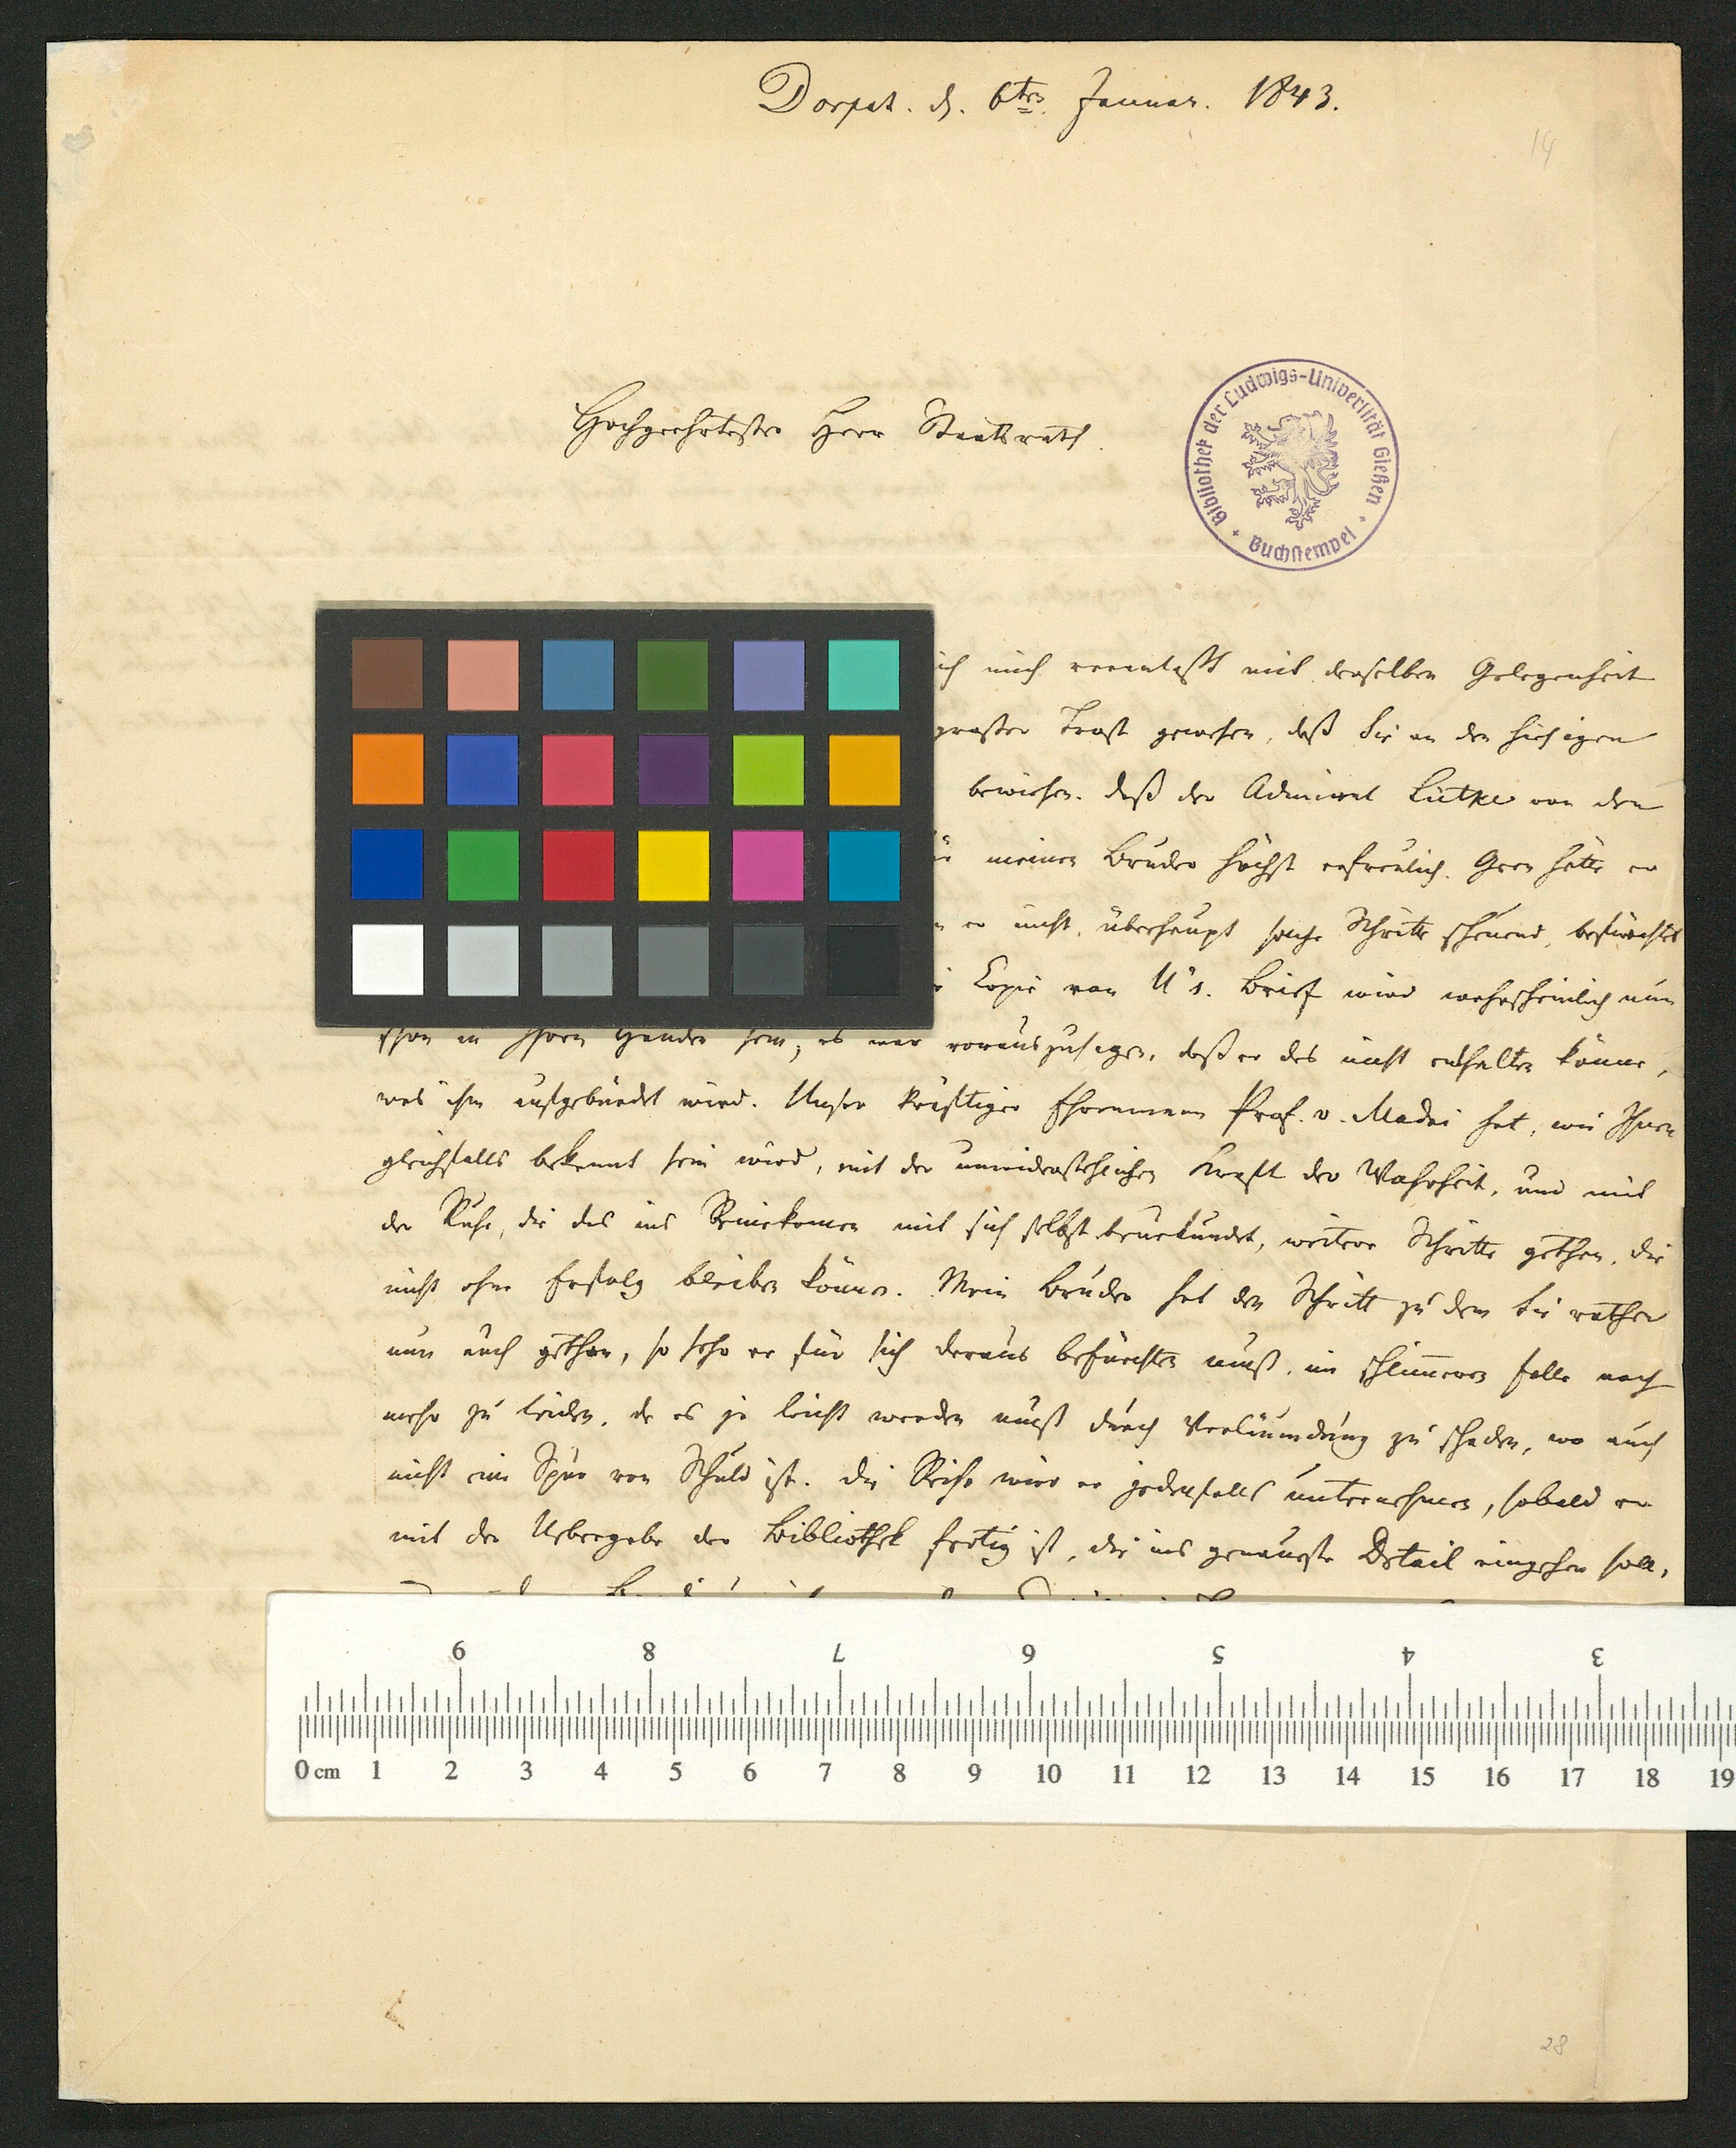 Dorpat. d. 6ten Januar. 1843.
19
Hochgeehrtester Herr Staatsrath.
Bibliothek der Ludwigs-Universität Gießen
Buchstempel
ich mich veranlaßt mit derselben Gelegenheit
großer Trost gewesen, daß Sie an den hiesigen
bewiesen. Daß der Admiral Lütke von den
meinen Bruder höchst erfreulich. Gern hätte er
er nicht, überhaupt solche Schritte scheuend, befürchtet
Copie von U's. Brief wird wahrscheinlich nun
schon in Ihren Händen sein; es war vorauszusagen, daß er das nicht enthalten könne,
was ihm aufgebürdet wird. Unser kräftiger Ehrenmann Prof. v. Madai hat, wie Ihnen
gleichfalls bekannt sein wird, mit der unwiderstehlichen Kraft der Wahrheit, und mit
der Ruhe, die das ins Reinekomen mit sich selbst beurkundet, weitere Schritte gethan, die
nicht ohne Erfolg bleiben können. Mein Bruder hat den Schritt zu dem Sie rathen
nun auch gethan, so sehr er für sich daraus befürchten muß, im schlimeren Falle noch
mehr zu leiden, da es ja leicht werden muß durch Verläumdung zu schaden, wo auch
nicht eine Spur von Schuld ist. Die Reise wird er jedenfalls unternehmen, sobald er
mit der Uebergabe der Bibliothek fertig ist, die ins genauste Detail eingehen soll,
9 8 7 6 5 4 3
0 cm 1 2 3 4 5 6 7 8 9 10 11 12 13 14 15 16 17 18 19
28